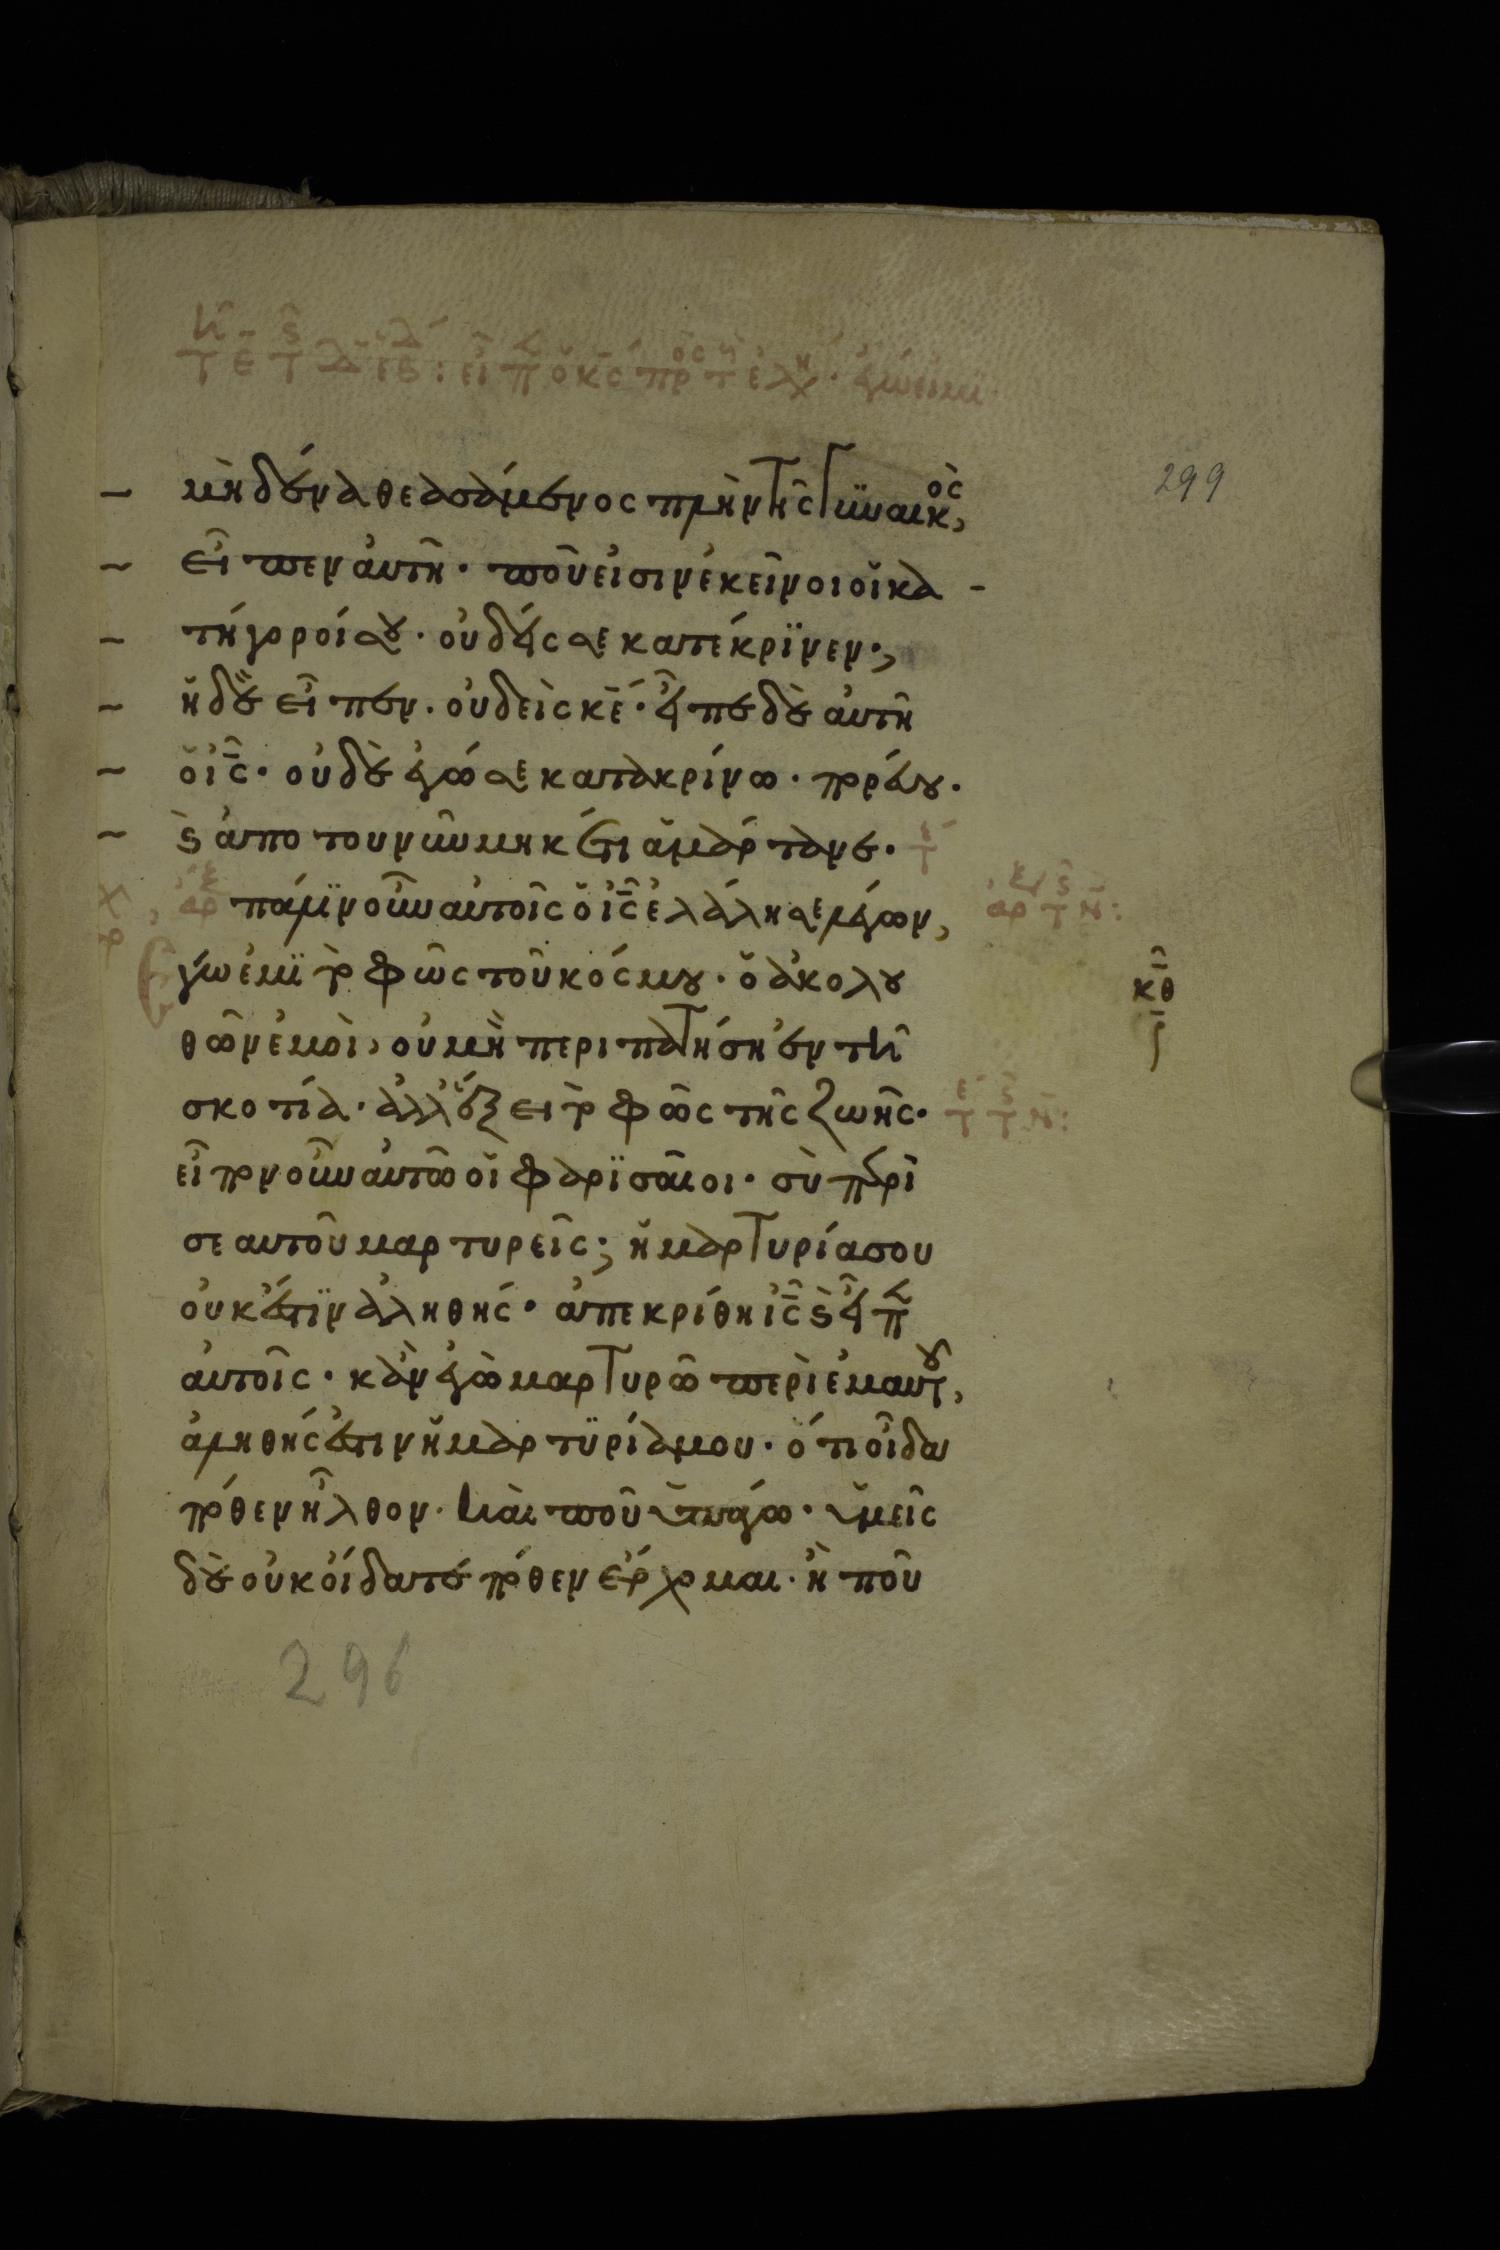 299
μηδένα θεασάμενος πλὴν τῆς γϋναικὸς,
εἶπεν αὐτῆ· ποῦ εἰσιν ἐκεῖνοι οἱ κα-
τήγοροί σου· οὐδείς σε κατέκρϊνεν;
ἡ δὲ εἶπεν· οὐδεὶς κ̅ε̅· εἶπε δὲ αὐτῆ
ὁ ι̅ς̅· οὐδὲ ἐγώ σε κατακρίνω· πορεύου·
ϗ ἀπο τοῦ νῦν μηκέτι ἁμάρτανε·
πάλϊν οὖν αὐτοῖς ὁ ι̅ς̅ ἐλάλησε λέγων,
ἐγώ εἰμϊ τὸ φῶς τοῦ κόσμου· ὁ ἀκολου
θῶν ἐμοὶ, οὐ μὴ περιπατήση ἐν τῆ
σκοτία· ἀλλ' ἕξει τὸ φῶς τῆς ζωῆς·
εἶπον οὖν αὐτῶ οἱ φαρϊσαῖοι· σὺ περὶ
σεαυτοῦ μαρτυρεῖς; ἡ μαρτυρία σου
οὐκ ἔστϊν ἀληθής· ἀπεκρίθη ι̅ς̅ ϗ εἶπ
αὐτοῖς· κἀν ἐγὼ μαρτυρῶ περὶ ἐμαυτοῦ,
ἀληθής ἐστιν ἡ μαρτϋρία μου· ὅτι οἶδα
πόθεν ἦλθον· καὶ ποῦ ὑπάγω· ὑμεῖς
δὲ οὐκ οἴδατε πόθεν ἔρχομαι· ἢ ποῦ
κθ
296